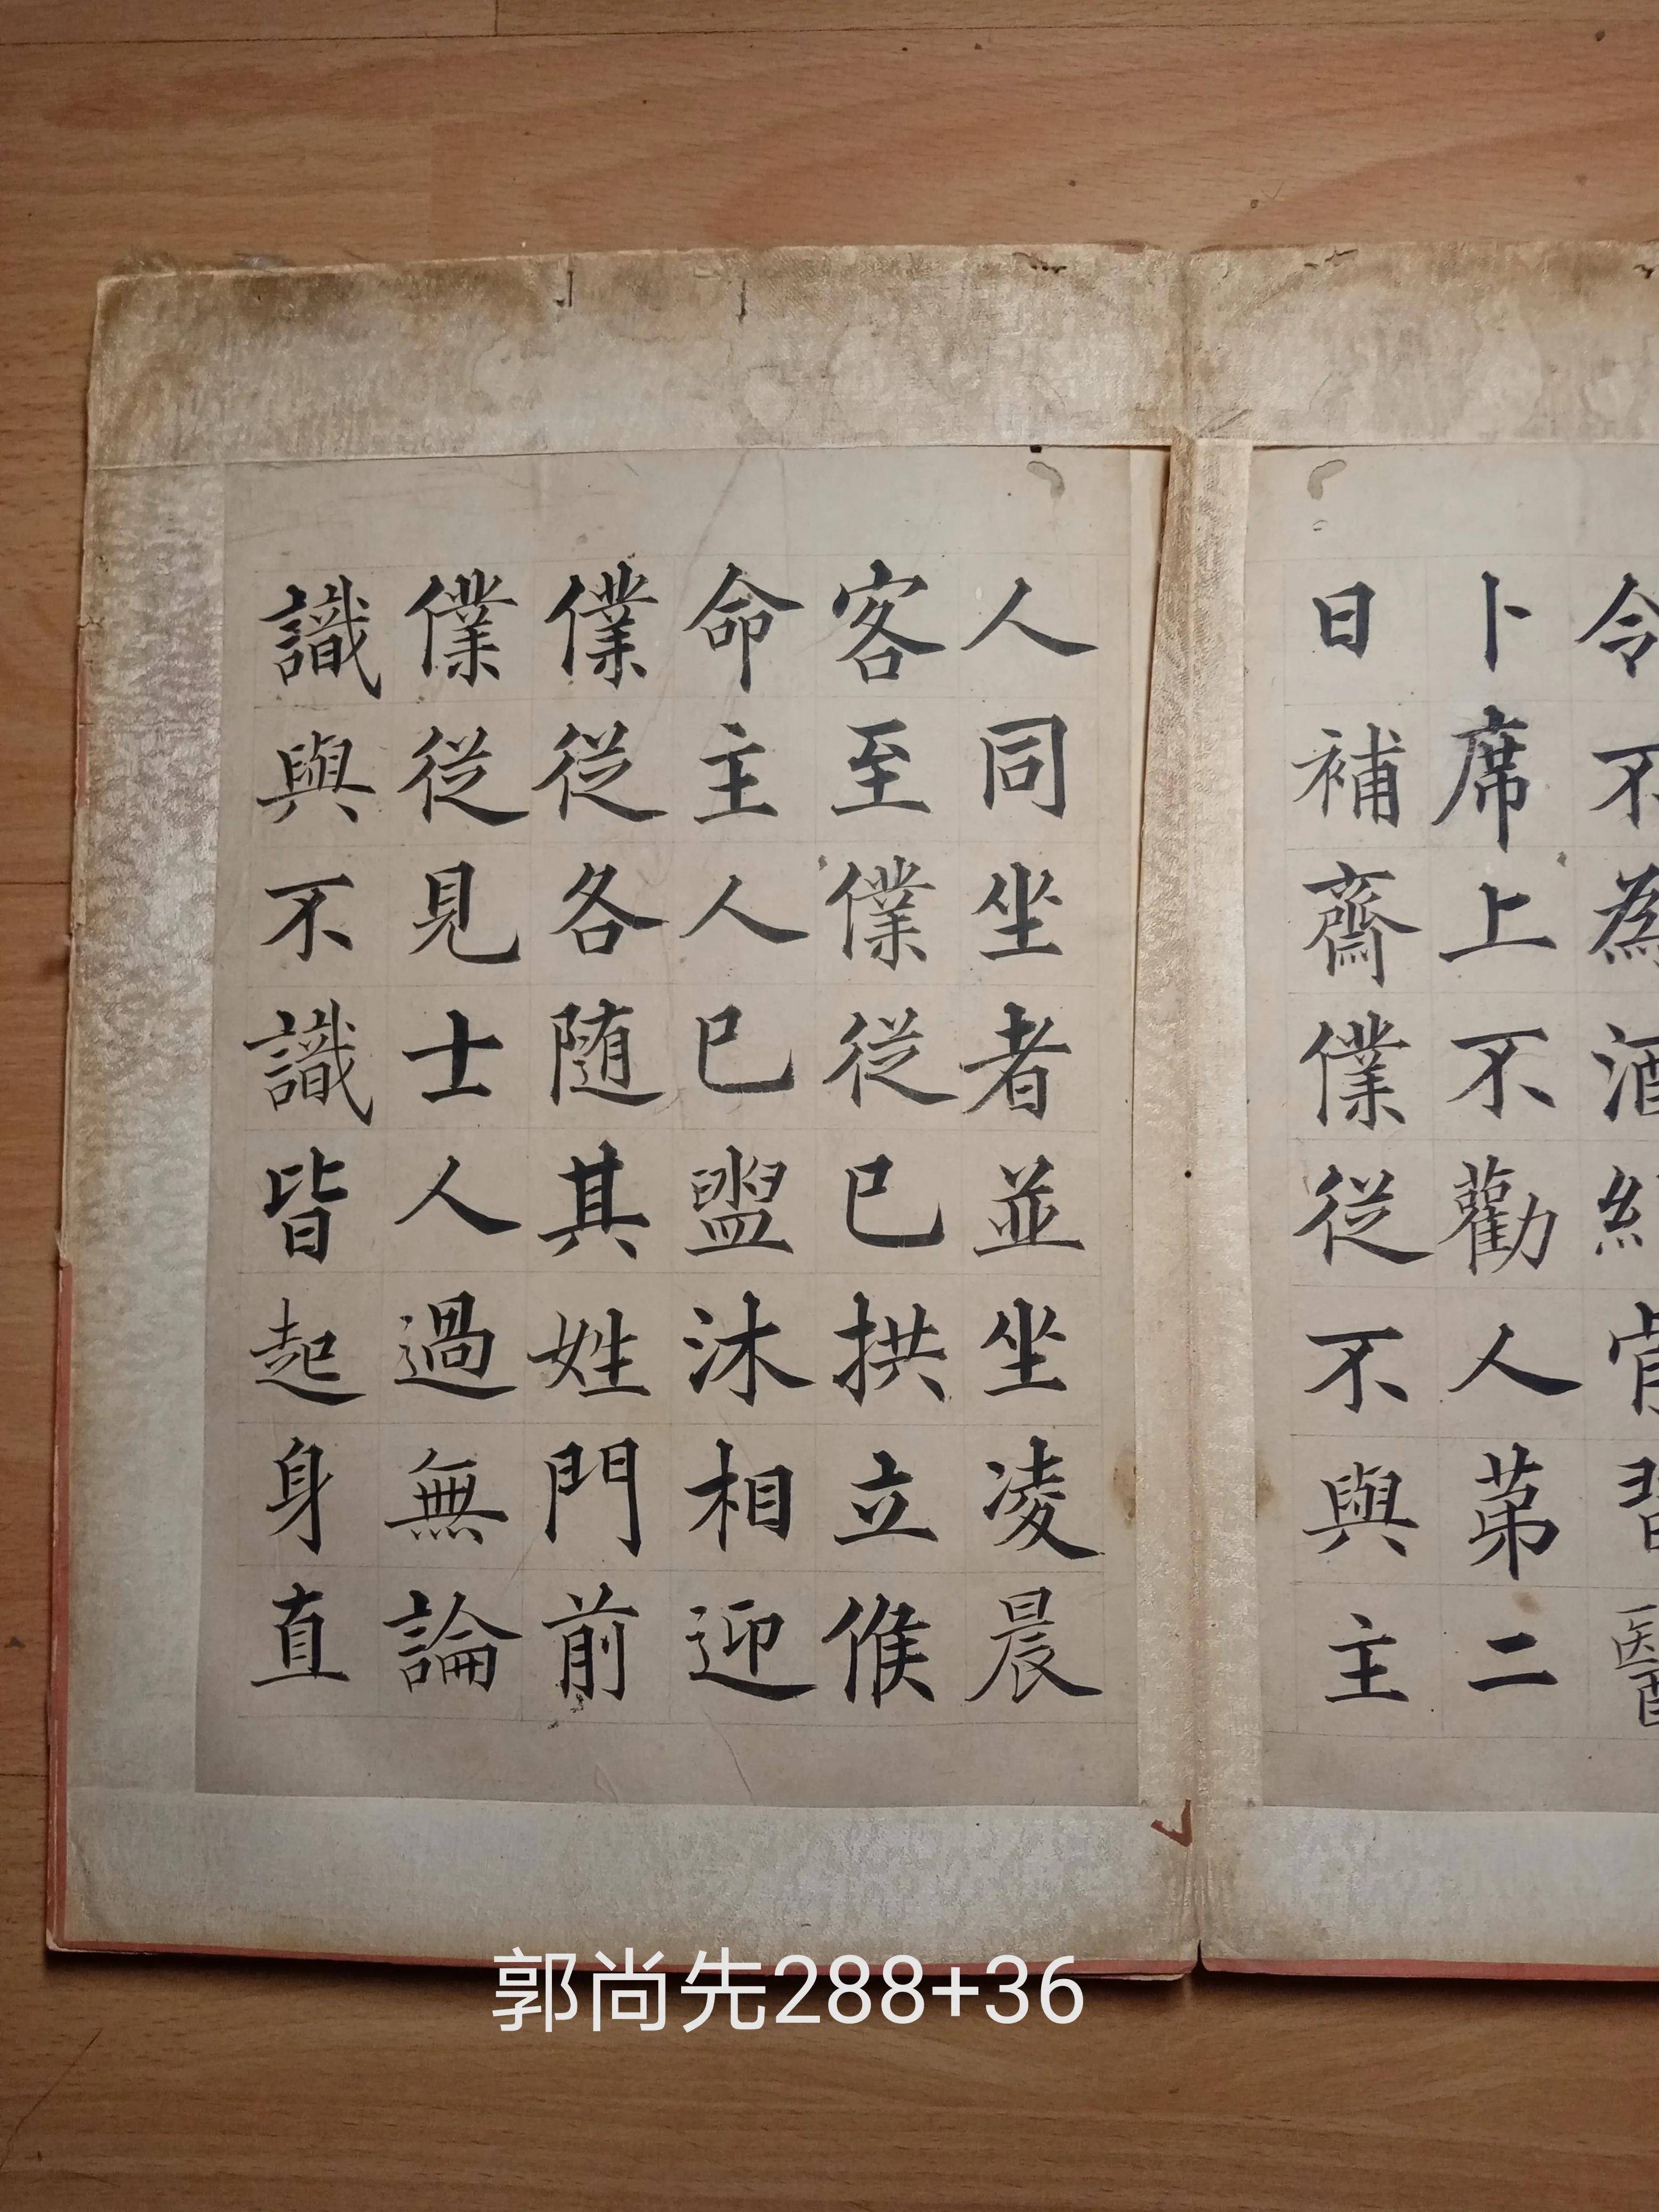 令不為酒
卜席上不勸人苐二
日補齋僕從不與主
人同坐者並坐凌晨
客至僕從已拱立候
命主人已盥沐相迎
僕從各隨其姓門前
僕從見士人過無論
識與不識皆起身直
郭尚先288+36